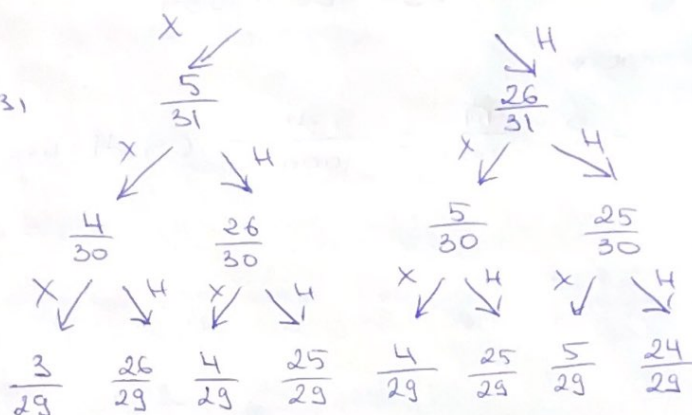 X H
31 5/31 26/31
X H X H
4/30 26/30 5/30 25/30
X H X H X H X H
3/29 26/29 4/29 25/29 4/29 25/29 5/29 24/29